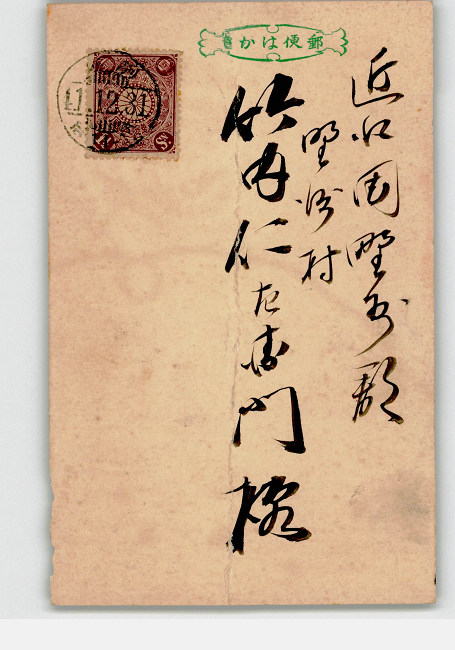 郵便はかき
近江国野洲郡
野洲村
竹内仁左衛門様
11.12.31